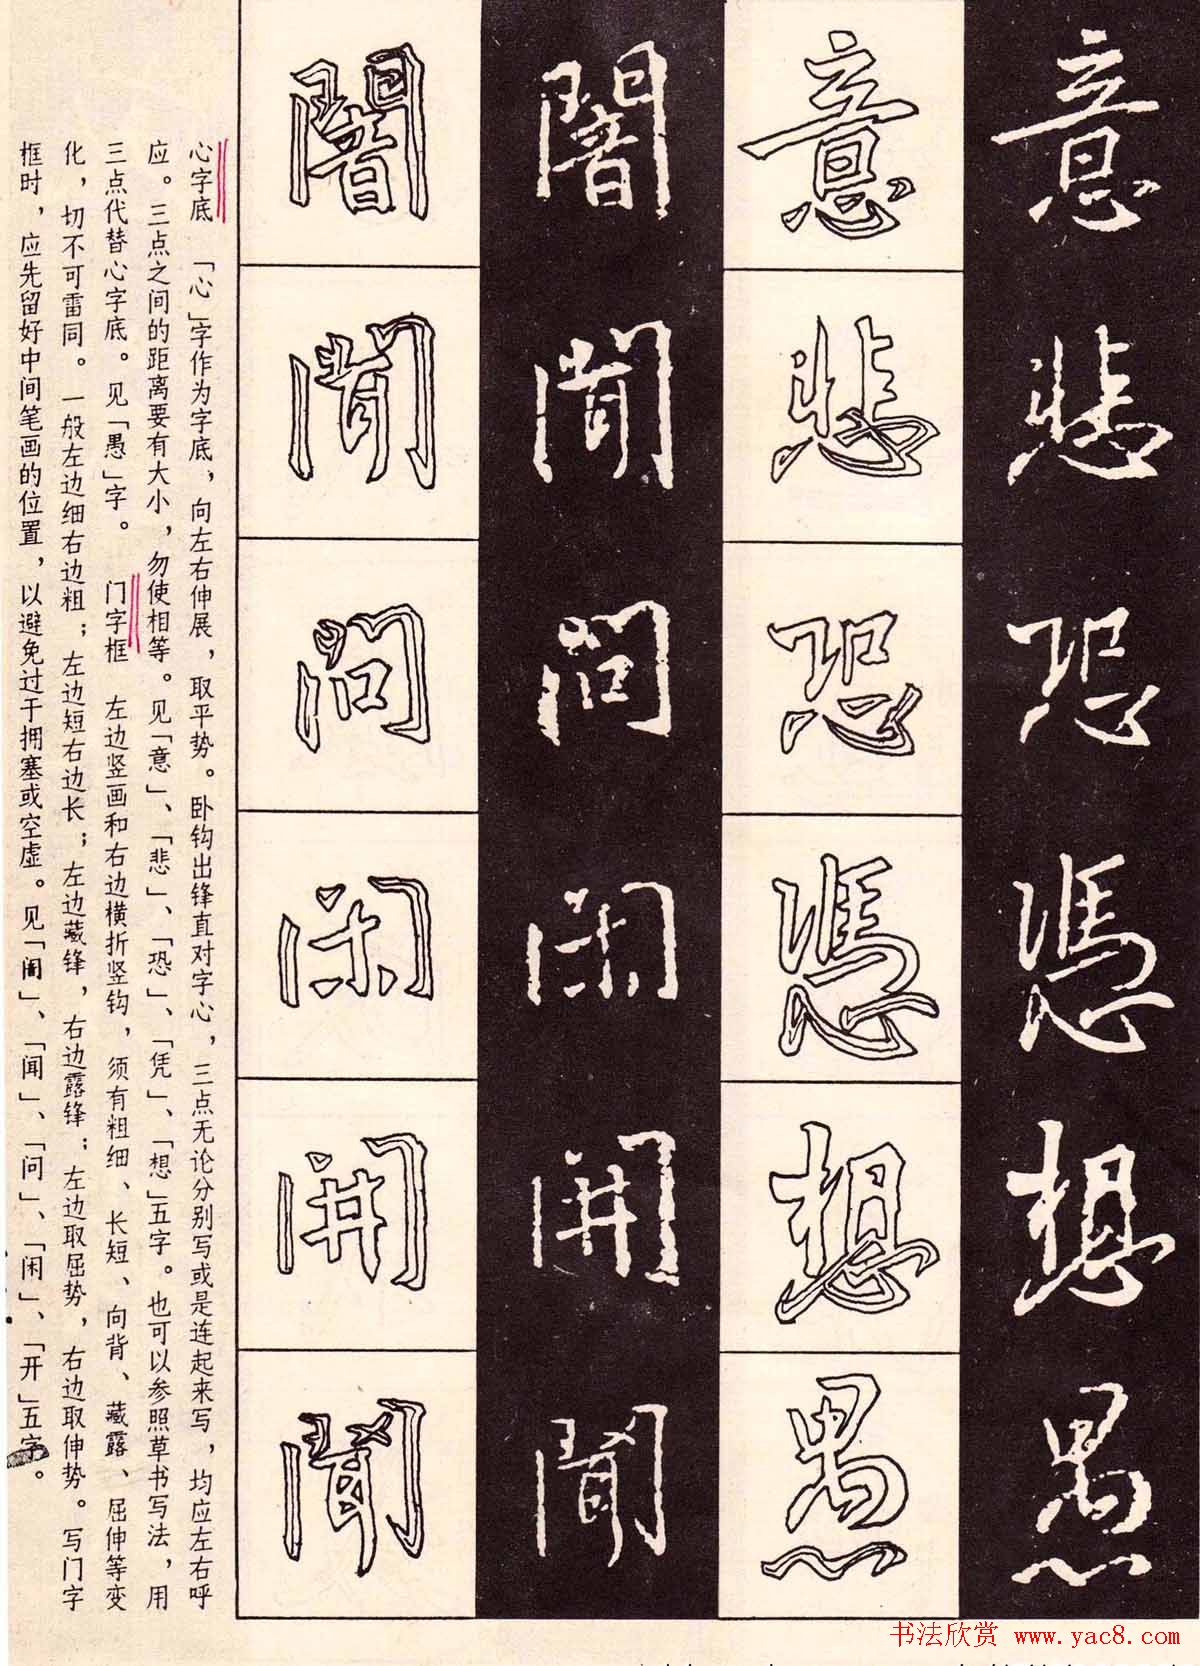 意
悲
恐
憑
想
愚
意
悲
恐
憑
想
愚
闇
問
閑
開
聞
闇
問
閑
開
聞
心字底　「心」字作为字底，向左右伸展，取平势。卧钩出锋直对字心，三点无论分别写或是连起来写，均应左右呼
应。三点之间的距离要有大小，勿使相等。见「意」、「悲」、「恐」、「凭」、「想」五字。也可以参照草书写法，用
三点代替心字底。见「愚」字。　门字框　左边竖画和右边横折竖钩，须有粗细、长短、向背、藏露、屈伸等变
化，切不可雷同。一般左边细右边粗；左边短右边长；左边藏锋，右边露锋；左边取屈势，右边取伸势。写门字
框时，应先留好中间笔画的位置，以避免过于拥塞或空虚。见「」、「闻」、「问」、「闲」、「开」五字。
书法欣赏 www.yac8.com